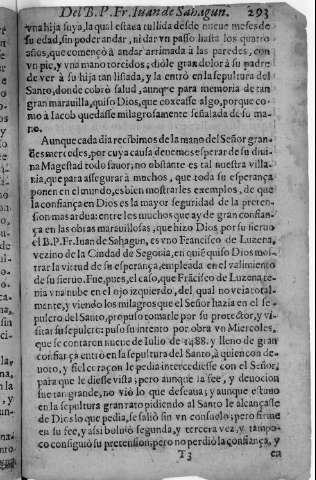 Del B.P.Fr.Iuan de Sahagun. 293
vna hija suya, la qual estaua tullida desde nueue meses de
su edad, sin poder andar, ni dar vn passo hasta los quatro
años, que començò à andar arrimada à las paredes, con
vn pie, y vna mano torcidos; diòle gran dolor à su padre
de ver à su hija tan lisiada, y la entrò en la sepultura del
Santo, donde cobrò salud, aunque para memoria de tan
gran marauilla, quiso Dios, que coxeasse algo, porque co-
mo à Iacob quedasse milagrosamente señalada de su ma-
no.
Aunque cada dia recibimos de la mano del Señor gran-
des mercedes, por cuya causa deuemos esperar de su diui-
na Magestad todo fauor, no obstante es tal nuestra villa-
nia, que para assegurar à muchos, que toda su esperança
ponen en el mundo, es bien mostrarles exemplos, de que
la confiança en Dios es la mayor seguridad de la preten-
sion mas ardua: entre los muchos que ay de gran confian-
ça en las obras marauillosas, que hizo Dios por su sieruo
el B.P.Fr.Iuan de Sahagun, es vno Francisco de Luzena,
vezino de la Ciudad de Segouia, en quiē quiso Dios mos-
trar la virtud de su esperança, empleada en el valimiento
de su sieruo. Fue, pues, el caso, que Frācisco de Luzena te-
nia vna nube en el ojo izquierdo, del qual no veia total-
mente, y viendo los milagros que el Señor hazia en el se-
pulcro del Santo, propuso tomarle por su protector, y vi-
sitar su sepulcro: puso su intento por obra vn Miercoles,
que se contaron nueue de Iulio de 1488. y lleno de gran
confiança entrò en la sepultura del Santo, à quien con de-
uoto, y fiel coraçon le pedia intercediesse con el Señor,
para que le diesse vista; pero aunque la fee, y deuocion
fue tan grande, no viò lo que deseaua; y aunque estuuo
en la sepultura gran rato pidiendo al Santo le alcançasse
de Dios lo que pedia, se saliò sin vn consuelo; pero firme
en su fee, y assi boluiò segunda, y tercera vez, y tampo-
co consiguiò su pretension; pero no perdiò la confiança, y
T3 en